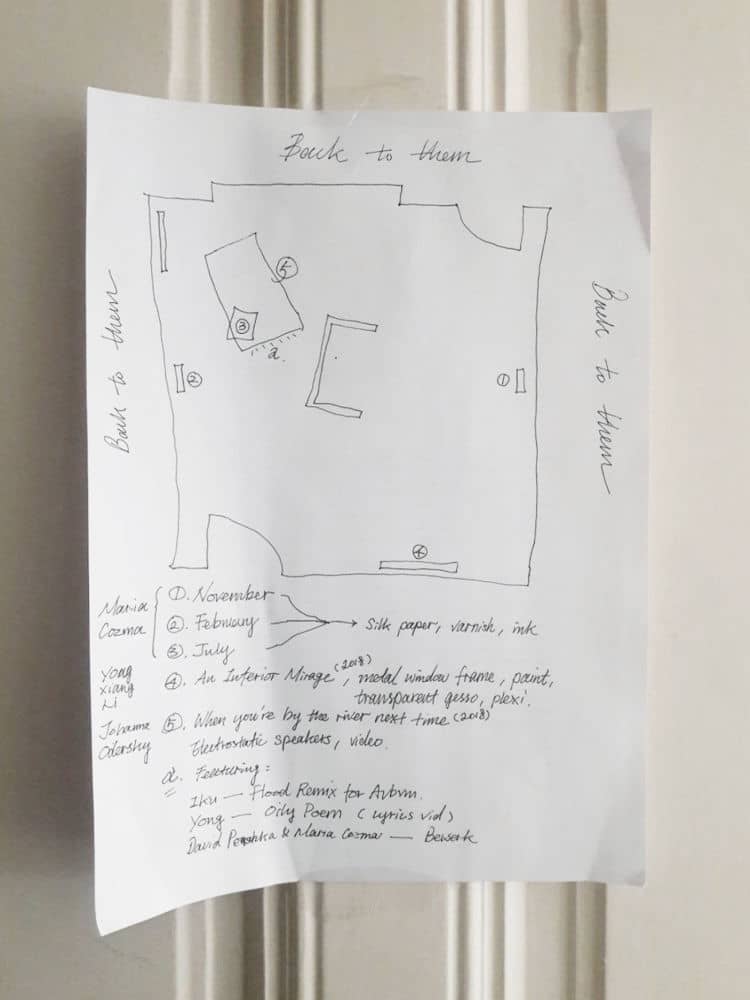 Back to them
Back to them
Back to them
5
3
a.
2
1
4
Maria Cozma
1. November
2. February
3. July
Silk paper, varnish, ink
Yong Xiang Li
4. An Interior Mirage (2018), metal window frame, paint,
transparent gesso, plexi.
Johanna Odersky
5. When you're by the river next time (2018)
Electrostatic speakers, video.
a. Featuring:
Iku — Flood Remix for
Yong — Oily Poem (Lyrics vid)
David & Maria Cozma — Berserk